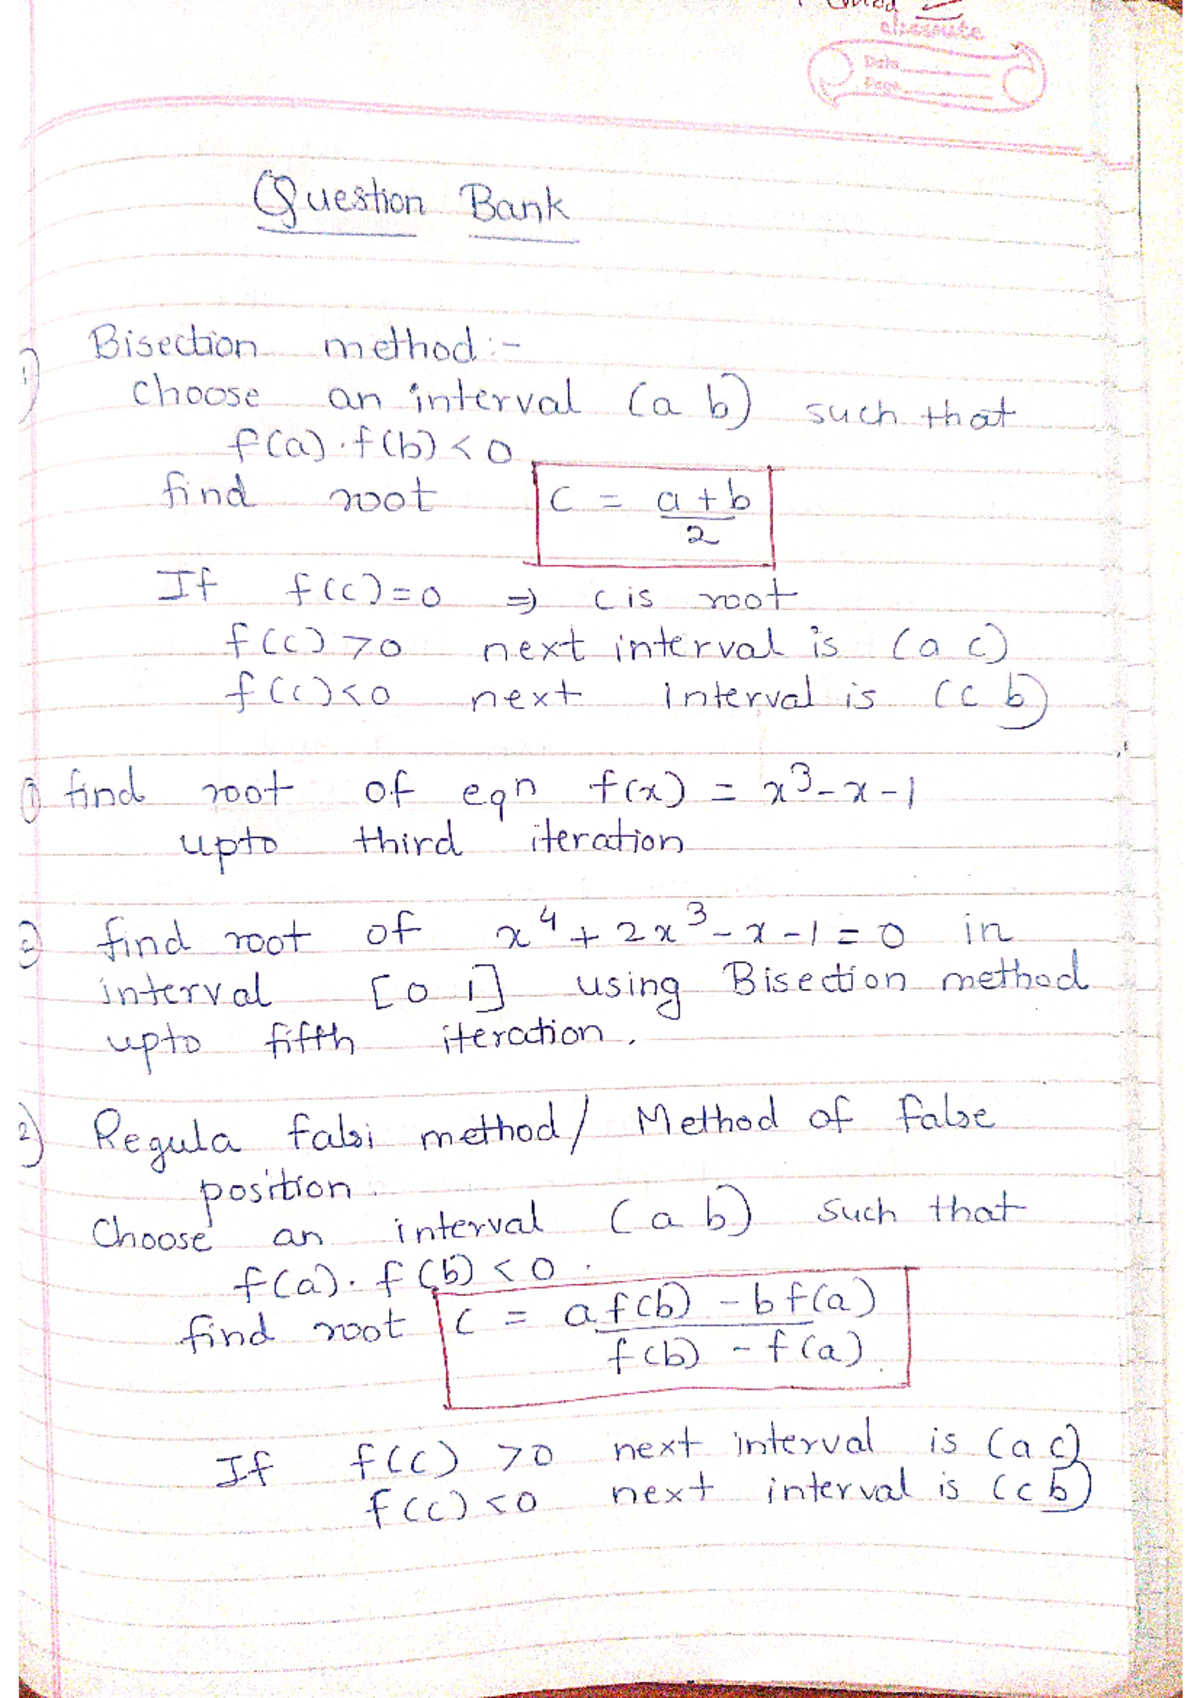 classmate
Date
Page
Question Bank
1) Bisection method:-
choose an interval (a b) such that
f(a)·f(b)<0
find root c = a+b
2
If f(c)=0 ⇒ c is root
f(c)>0 next interval is (a c)
f(c)<0 next interval is (c b)
① find root of eqn f(x) = x³-x-1
upto third iteration
② find root of x⁴+2x³-x-1=0 in
interval [0 1] using Bisection method
upto fifth iteration.
2) Regula falsi method/ Method of false
position.
Choose an interval (a b) such that
f(a)·f(b)<0.
find root c = af(b) - bf(a)
f(b) - f(a)
If f(c) >0 next interval is (a c)
f(c)<0 next interval is (c b)